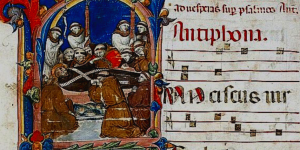 ad uesperas sup psalmos Ant.
Antiphona.
ciscus uir